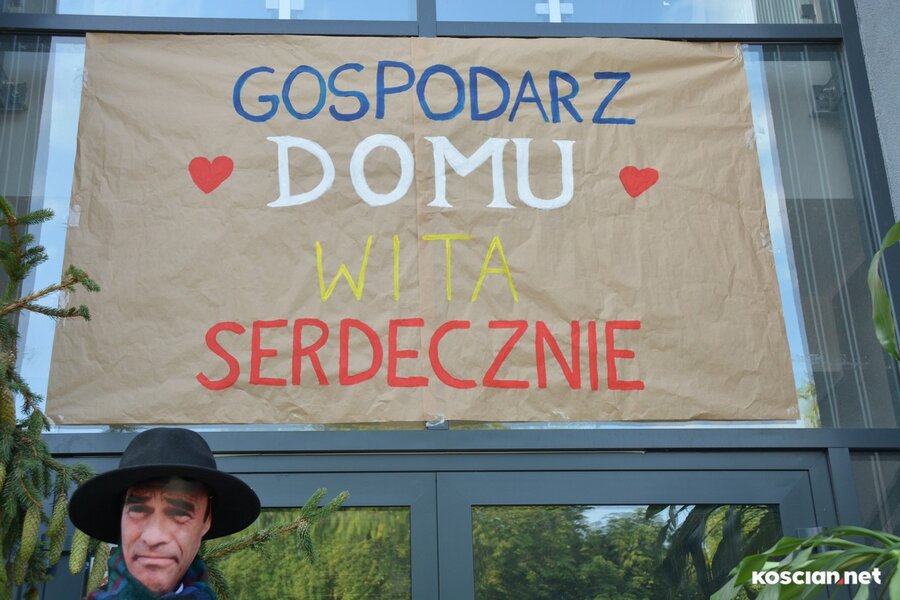 GOSPODARZ
DOMU
WITA
SERDECZNIE
KOSCIAN.NET